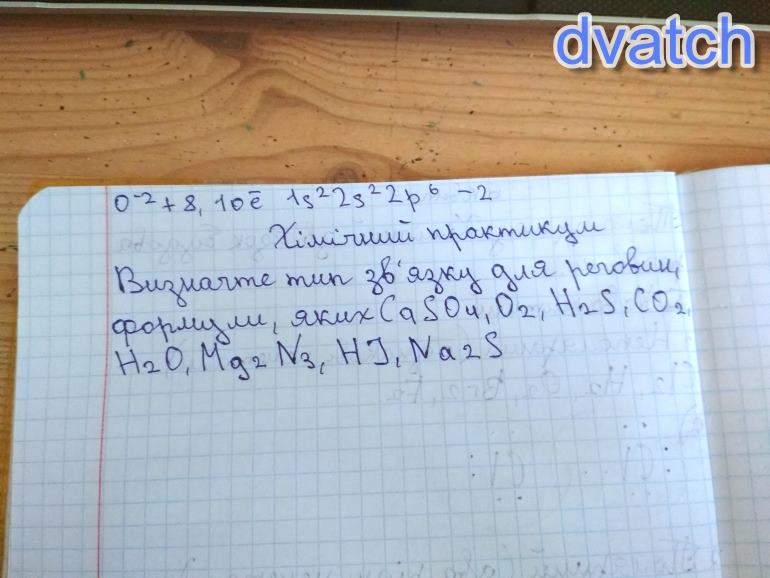 dvatch
O⁻² +8, 10ē 1s²2s²2p⁶ -2
Хімічний практикум
Визначте тип зв'язку для реговин,
формули, яких CaSO₄, O₂, H₂S, CO₂,
H₂O, Mg₂N₃, HJ, Na₂S